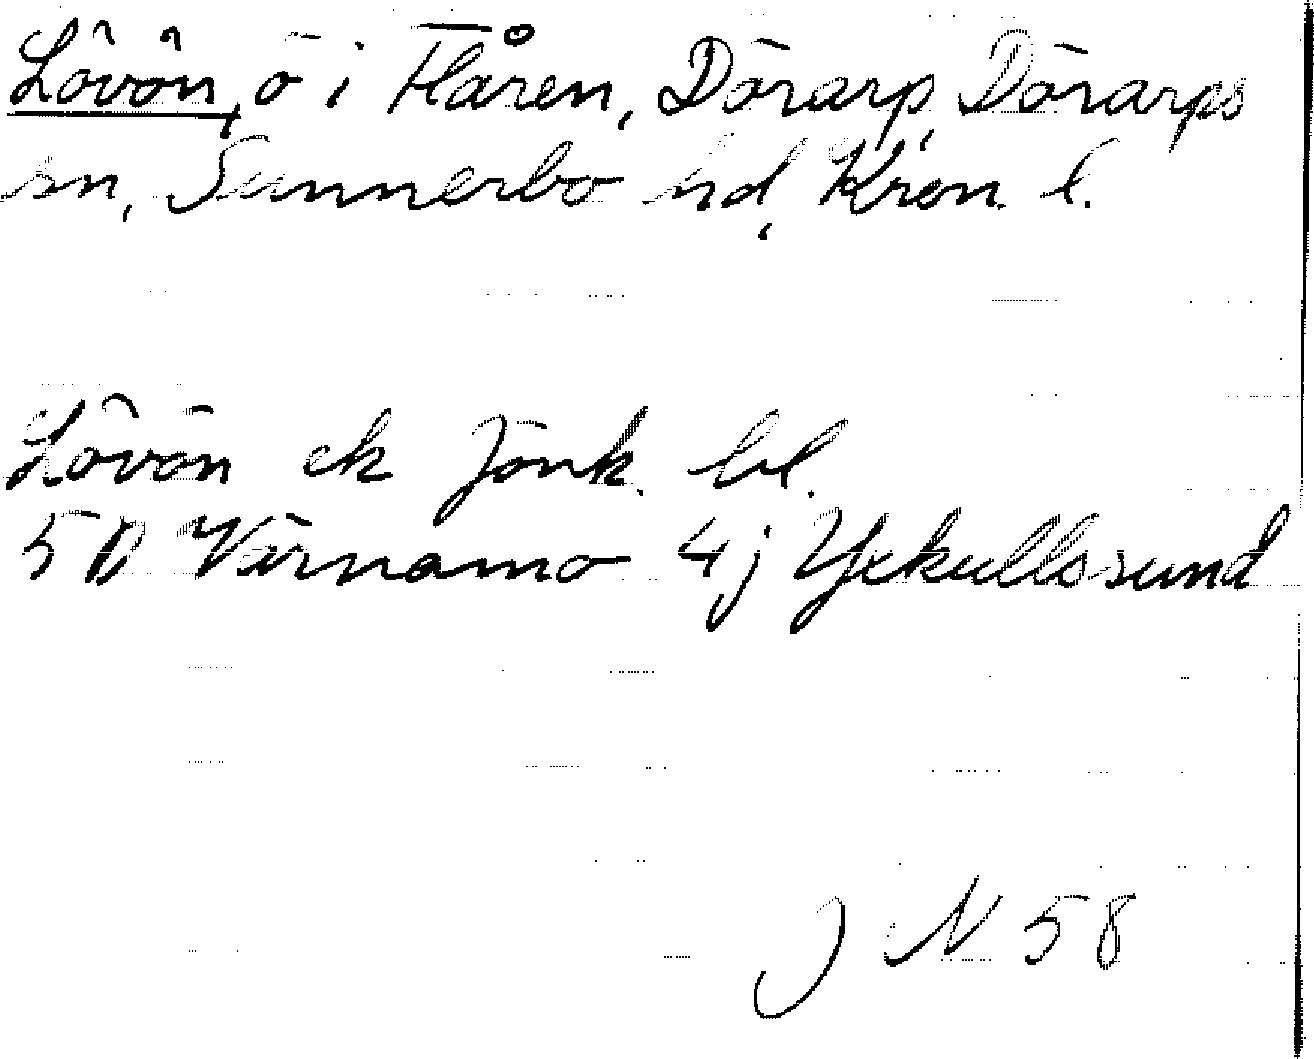 Lövön, ö i Flåren, Dörarp, Dörarps
sn, Sunnerbo hd, Kron. l.
Lövön ek Jönk. bl.
5D Värnamo 4j Yxkullssund
J N 58